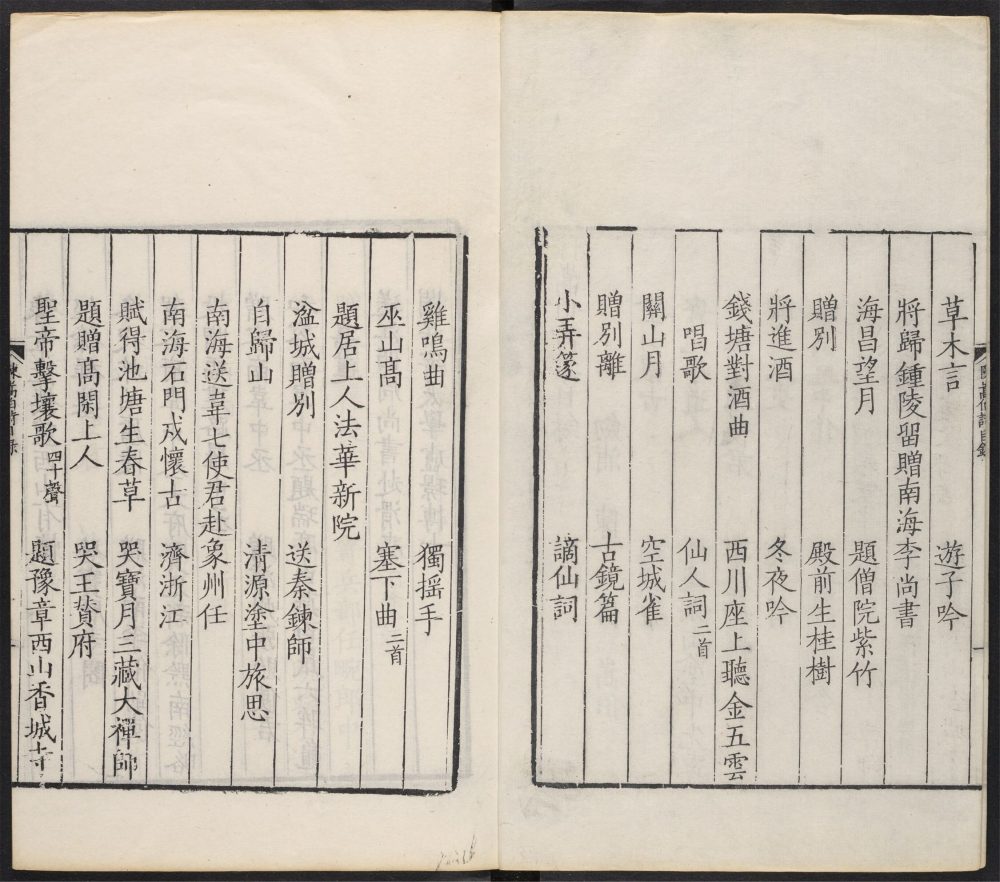 草木言 遊子吟
將歸鍾陵留贈南海李尚書
海昌望月 題僧院紫竹
贈別 殿前生桂樹
將進酒 冬夜吟
錢塘對酒曲 西川座上聽金五雲
唱歌 仙人詞二首
關山月 空城雀
贈別離 古鏡篇
小弄篴 謫仙詞
雞鳴曲 獨搖手
巫山髙 塞下曲二首
題居上人法華新院
湓城贈別 送秦鍊師
自歸山 清源塗中旅思
南海送韋七使君赴象州任
南海石門戍懷古 濟浙江
賦得池塘生春草 哭寶月三藏大禪師
題贈髙閑上人 哭王贊府
聖帝擊壤歌四十聲 題豫章西山香城寺